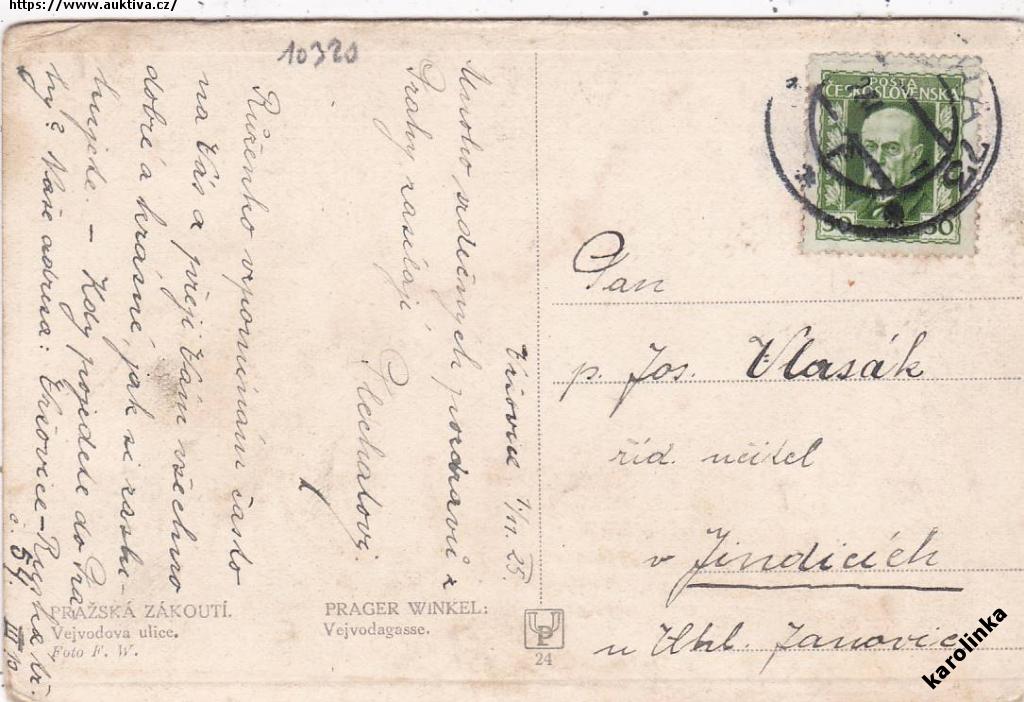 https://www.auktiva.cz/
10320
POSTA
ČESKOSLOVENSKA
50 50
HA 23
Vršovice 1/11. 25.
Mnoho srdečných pozdravů z
Prahy zasílají
Plechatovi.
Růženko vzpomínám často
na Vás a přeji Vám všechno
dobré a krásné, jak si zaslu-
hujete. - Kdy pojedete do Pra-
hy? Naše adresa: Vršovice - Riegra tř.
č. 54. III p.
Pan
p. Jos. Vlasák
říd. učitel
v Jindicích
u Uhl. Janovic
PRAŽSKÁ ZÁKOUTÍ.
Vejvodova ulice.
Foto F. W.
PRAGER WINKEL:
Vejvodagasse.
UP
24
karolinka